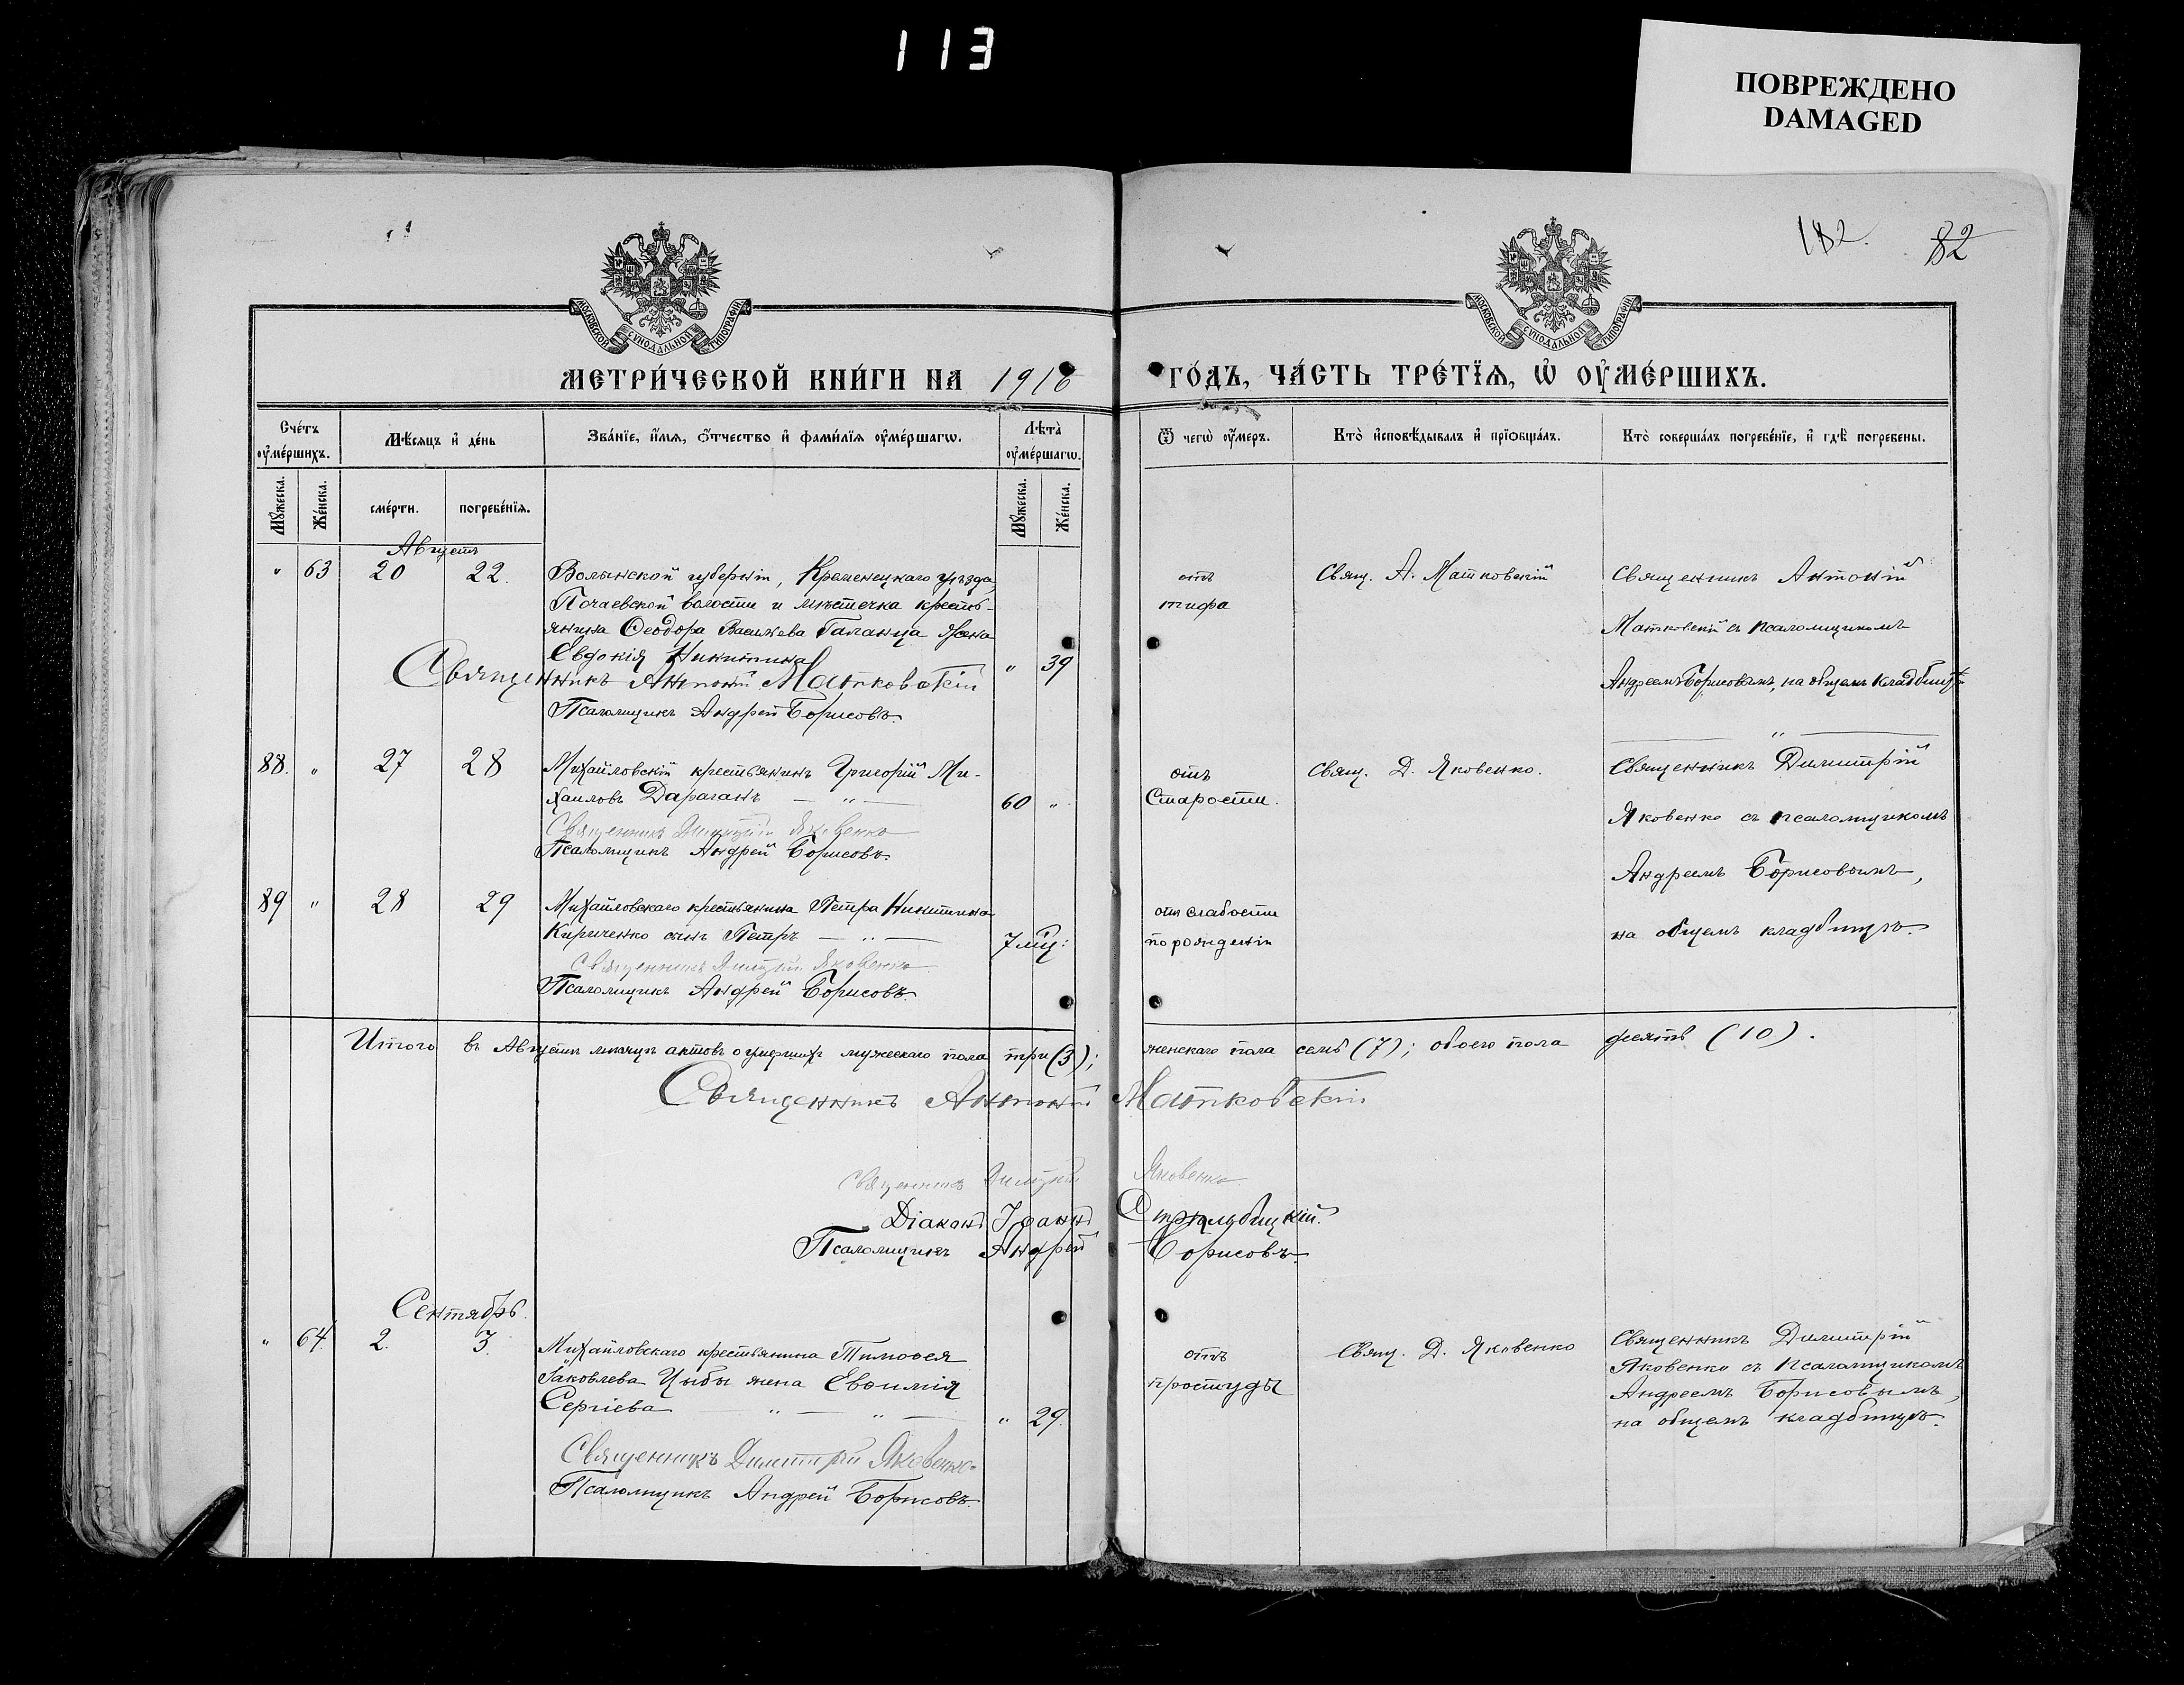 113
ПОВРЕЖДЕНО
DAMAGED
182. 82
МОСКОВСКОЙ СѴНОДАЛЬНОЙ ТИПОГРАФІИ
МОСКОВСКОЙ СѴНОДАЛЬНОЙ ТИПОГРАФІИ
МЕТРИ́ЧЕСКОЙ КНИ́ГИ НА 1916 ГО́ДЪ, ЧА́СТЬ ТРЕ́ТЇѦ, Ѡ҆ ОУ҆МЕ́РШИХЪ.
Сче́тъ оу҆ме́ршихъ.
Мѣ́сѧцъ и҆ де́нь
Зва́нїе, и҆́мѧ, ѻ҆́тчество и҆ фами́лїѧ оу҆ме́ршагѡ.
Лѣ́та оу҆ме́ршагѡ.
Ѿ чегѡ̀ оу҆́меръ.
Кто̀ и҆сповѣ́дывалъ и҆ прїѡбща́лъ.
Кто̀ соверша́лъ погребе́нїе, и҆ гдѣ̀ погребены.
Мꙋ́жеска. Же́нска. сме́рти. погребе́нїѧ. Мꙋ́жеска. Же́нска.
Августъ
" 63 20 22. Волынской губерніи, Кременецкаго уѣзда,
Почаевской волости и мѣстечка кресть-
янина Ѳеодора Васильева Галанца жена
Евдокія Никитина " 39
Священникъ Антоній Матковскій
Псаломщикъ Андрей Борисовъ.
отъ
тифа
Свящ. А. Матковскій
Священникъ Антоній
Матковскій съ псаломщикомъ
Андреемъ Борисовымъ, на общемъ кладбищѣ
88. " 27 28 Михайловскій крестьянинъ Григорій Ми-
хаиловъ Дараганъ — " — 60 "
Священникъ Димитрій Яковенко
Псаломщикъ Андрей Борисовъ.
отъ
Старости.
Свящ. Д. Яковенко.
Священникъ Димитрій
Яковенко съ псаломщикомъ
Андреемъ Борисовымъ,
на общемъ кладбищѣ.
89 " 28 29 Михайловскаго крестьянина Петра Никитина
Кириченко сынъ Петръ — " — 7 мц:
Священникъ Димитрій Яковенко
Псаломщикъ Андрей Борисовъ.
отъ слабости
по рожденіи
Итого въ Августѣ мѣсяцѣ актовъ о умершихъ мужескаго пола три (3); женскаго пола семь (7); обоего пола десять (10).
Священникъ Антоній Матковскій
Священникъ Димитрій Яковенко
Діаконъ Іоаннъ Стрѣльбицкій.
Псаломщикъ Андрей Борисовъ.
Сентябрь.
" 64. 2. 3. Михайловскаго крестьянина Тимоѳея
Іаковлева Цыбы жена Евѳимія
Сергіева — " — " — " 29.
Священникъ Димитрій Яковенко
Псаломщикъ Андрей Борисовъ.
отъ
простуды
Свящ. Д. Яковенко
Священникъ Димитрій
Яковенко съ псаломщикомъ
Андреемъ Борисовымъ,
на общемъ кладбищѣ.